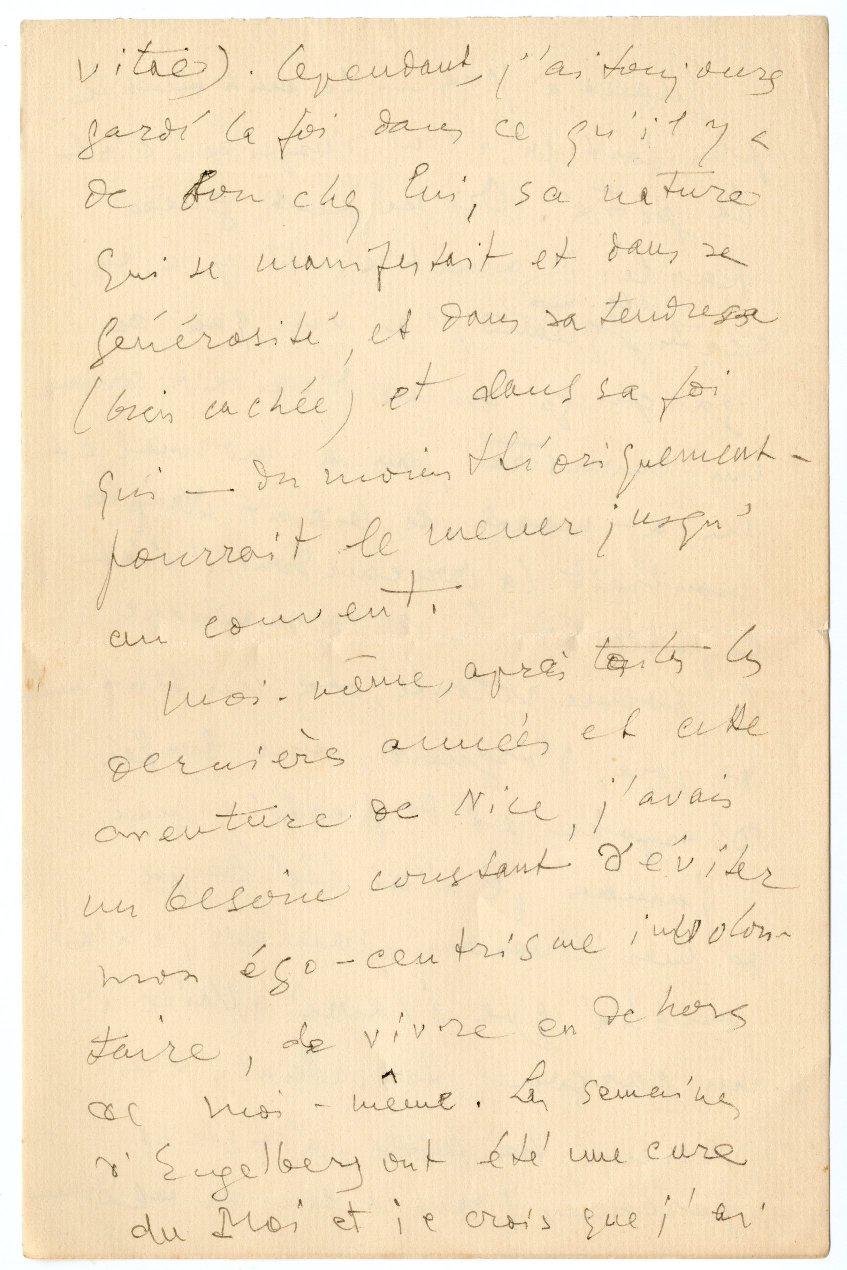 vitaé). Cependant, j'ai toujours
gardé la foi dans ce qu'il y a
de bon chez lui, sa nature
qui se manifestait et dans sa
générosité, et dans sa tendresse
(bien cachée) et dans sa foi
qui — du moins théoriquement -
pourrait le mener jusqu'
au couvent.
Moi-même, après toutes les
dernières années et cette
aventure de Nice, j'avais
un besoin constant d'éviter
mon égo-centrisme involon-
taire, de vivre en dehors
de moi-même. Les semaines
d'Engelberg ont été une cure
du Moi et je crois que j'ai